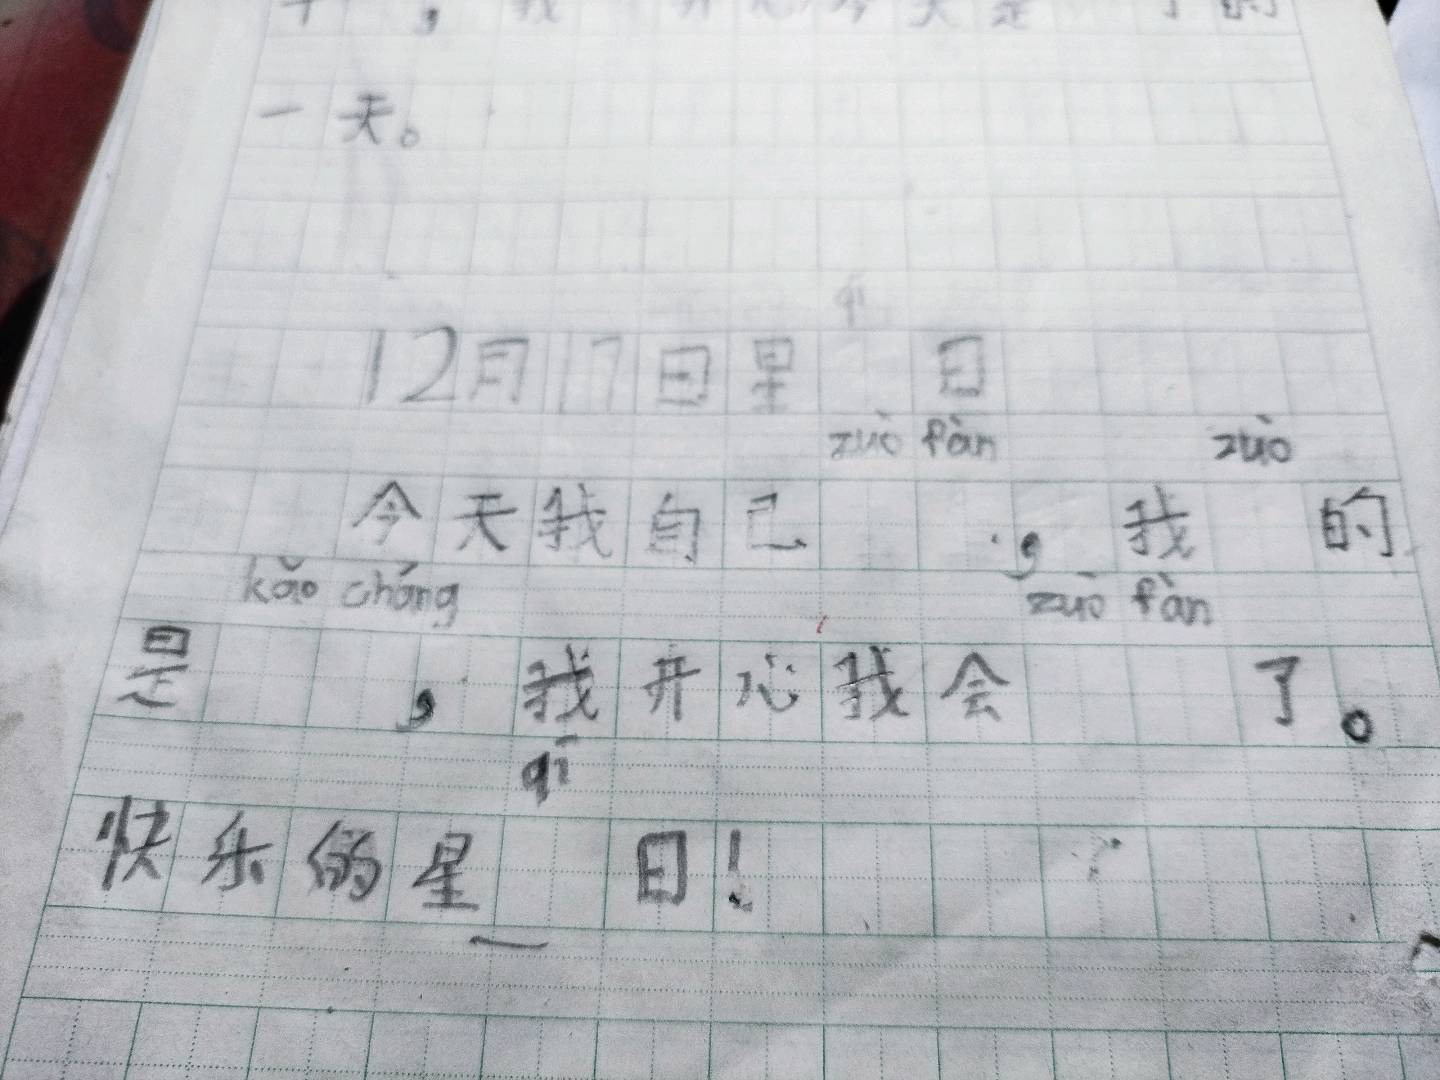 ，我 开心今天是 了的
一天。
qī
12月17日星 日
zuò fàn zuò
今天我自己 ，我 的
kǎo cháng zuò fàn
是 ，我开心我会 了。
qī
快乐的星 日！